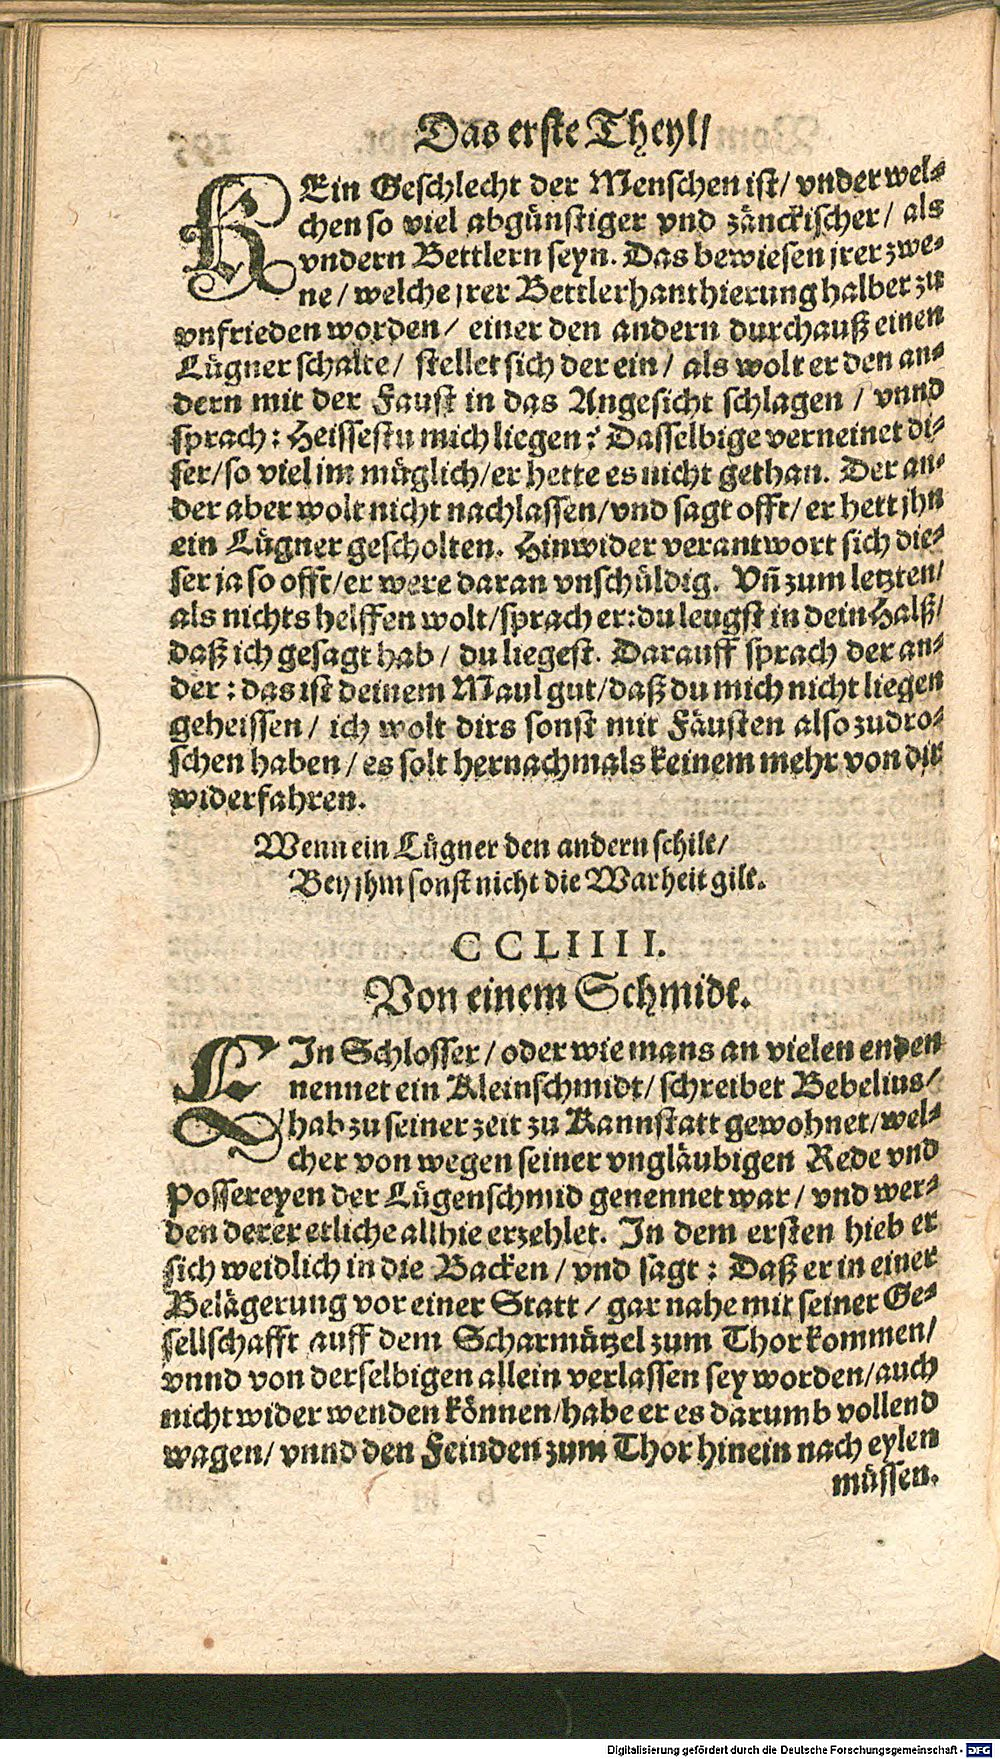 Das erste Theyl/
KEin Geschlecht der Menschen ist/ vnder wel-
chen so viel abgünstiger vnd zänckischer/ als
vndern Bettlern seyn. Das bewiesen jrer zwe-
ne/ welche jrer Bettlerhanthierung halber zu
vnfrieden worden/ einer den andern durchauß einen
Lügner schalte/ stellet sich der ein/ als wolt er den an-
dern mit der Faust in das Angesicht schlagen / vnnd
sprach: Heissestu mich liegen? Dasselbige verneinet di-
ser/ so viel im müglich/ er hette es nicht gethan. Der an-
der aber wolt nicht nachlassen/ vnd sagt offt/ er hett jhn
ein Lügner gescholten. Hinwider verantwort sich die-
ser ja so offt/ er were daran vnschüldig. Vñ zum letzten/
als nichts helffen wolt/ sprach er: du leugst in dein Halß/
daß ich gesagt hab / du liegest. Darauff sprach der an-
der: das ist deinem Maul gut/ daß du mich nicht liegen
geheissen/ ich wolt dirs sonst mit Fäusten also zudro-
schen haben/ es solt hernachmals keinem mehr von dir
widerfahren.
Wenn ein Lügner den andern schilt/
Bey jhm sonst nicht die Warheit gilt.
CCLIIII.
Von einem Schmidt.
EIn Schlosser/ oder wie mans an vielen enden
nennet ein Kleinschmidt/ schreibet Bebelius/
hab zu seiner zeit zu Kannstatt gewohnet/ wel-
cher von wegen seiner vngläubigen Rede vnd
Possereyen der Lügenschmid genennet war/ vnd wer-
den derer etliche allhie erzehlet. In dem ersten hieb er
sich weidlich in die Backen/ vnd sagt: Daß er in einer
Belägerung vor einer Statt/ gar nahe mit seiner Ge-
sellschafft auff dem Scharmützel zum Thor kommen/
vnnd von derselbigen allein verlassen sey worden/ auch
nicht wider wenden können/ habe er es darumb vollend
wagen/ vnnd den Feinden zum Thor hinein nach eylen
müssen.
Digitalisierung gefördert durch die Deutsche Forschungsgemeinschaft - DFG